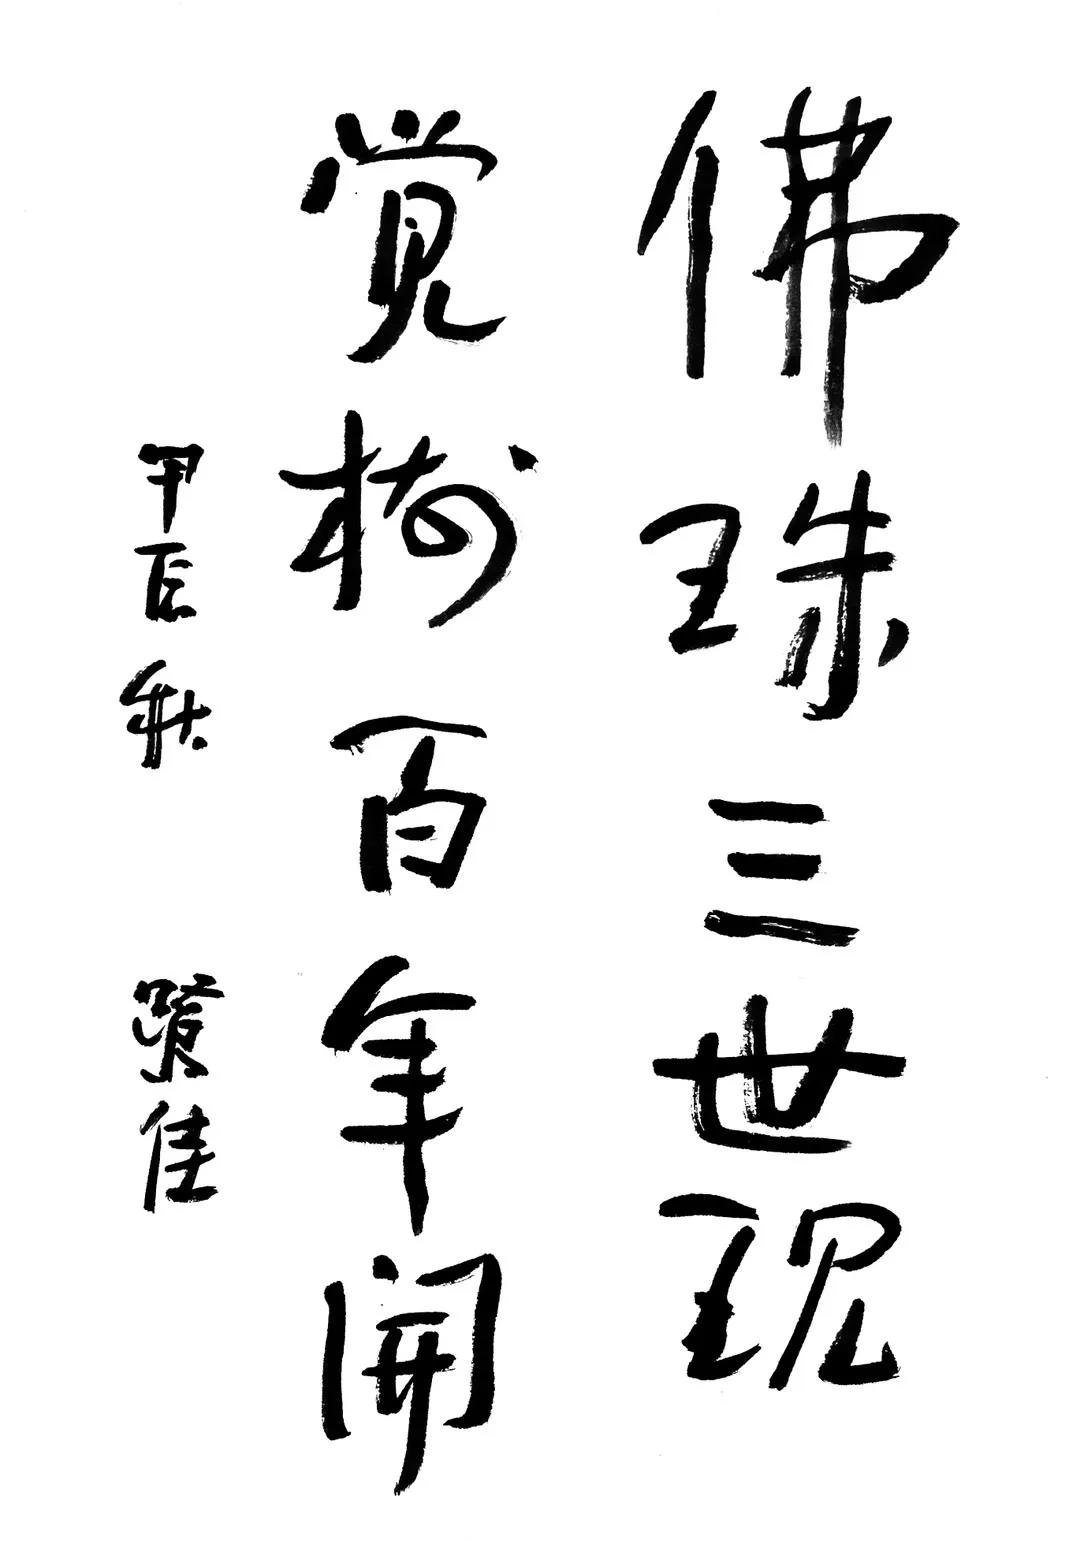 佛珠三世现
觉树百年開
甲辰秋
佳